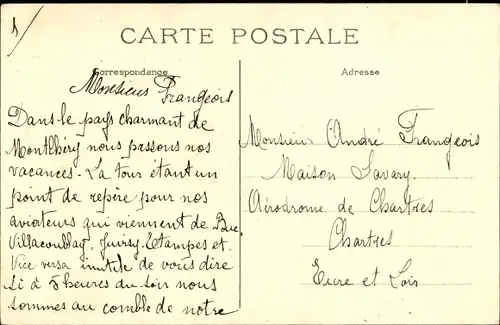 CARTE POSTALE
Correspondance
Adresse
Monsieur Frangeois
Dans le pays charmant de
Montlhéry nous passons nos
vacances - La tour étant un
point de repère pour nos
aviateurs qui viennent de Buc
Villacoublay, Juvisy - Etampes et
Vice versa inutile de vous dire
si à 5 heures du soir nous
sommes au comble de notre
Monsieur André Frangeois
Maison Savary
Aérodrome de Chartres
Chartres
Eure et Loir